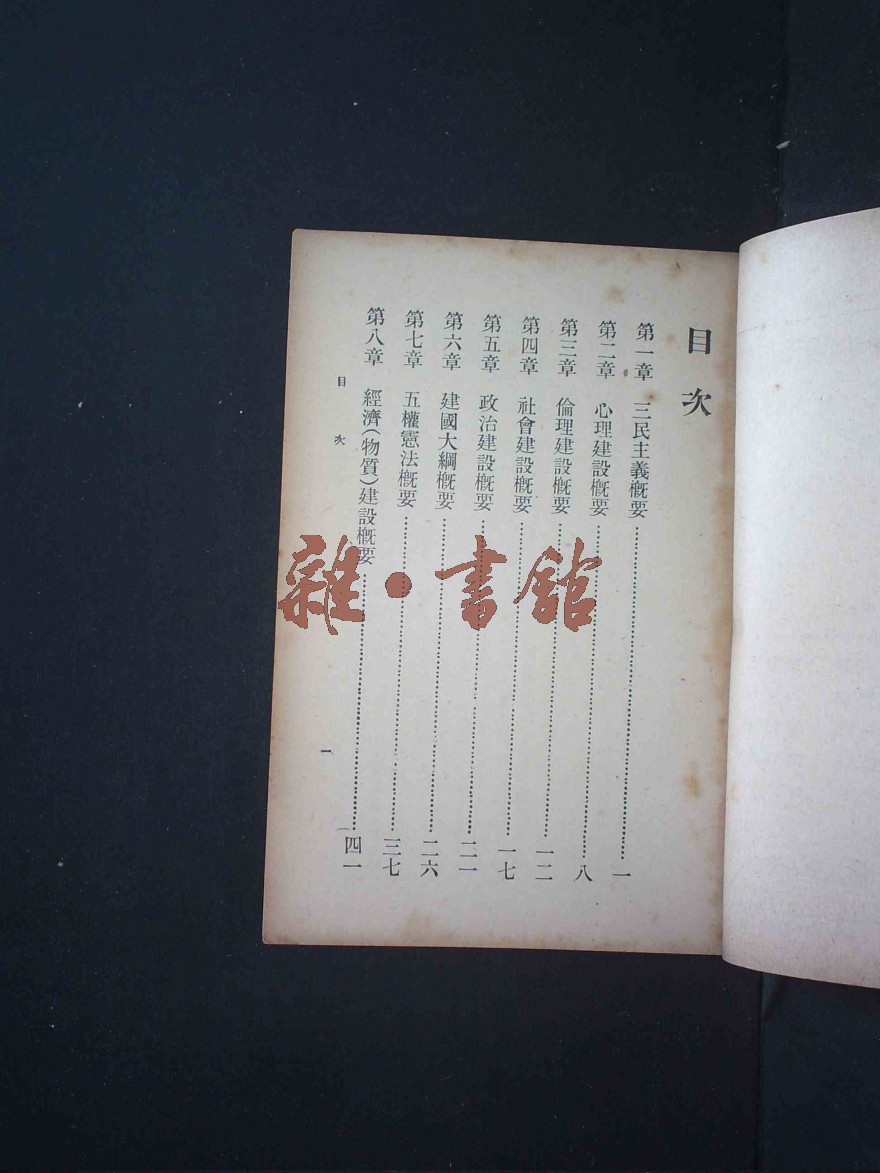 目次
第一章 三民主義概要……一
第二章 心理建設概要……八
第三章 倫理建設概要……一二
第四章 社會建設概要……一七
第五章 政治建設概要……二一
第六章 建國大綱概要……二六
第七章 五權憲法概要……三七
第八章 經濟（物質）建設概要……四一
目次
一
雜·書館